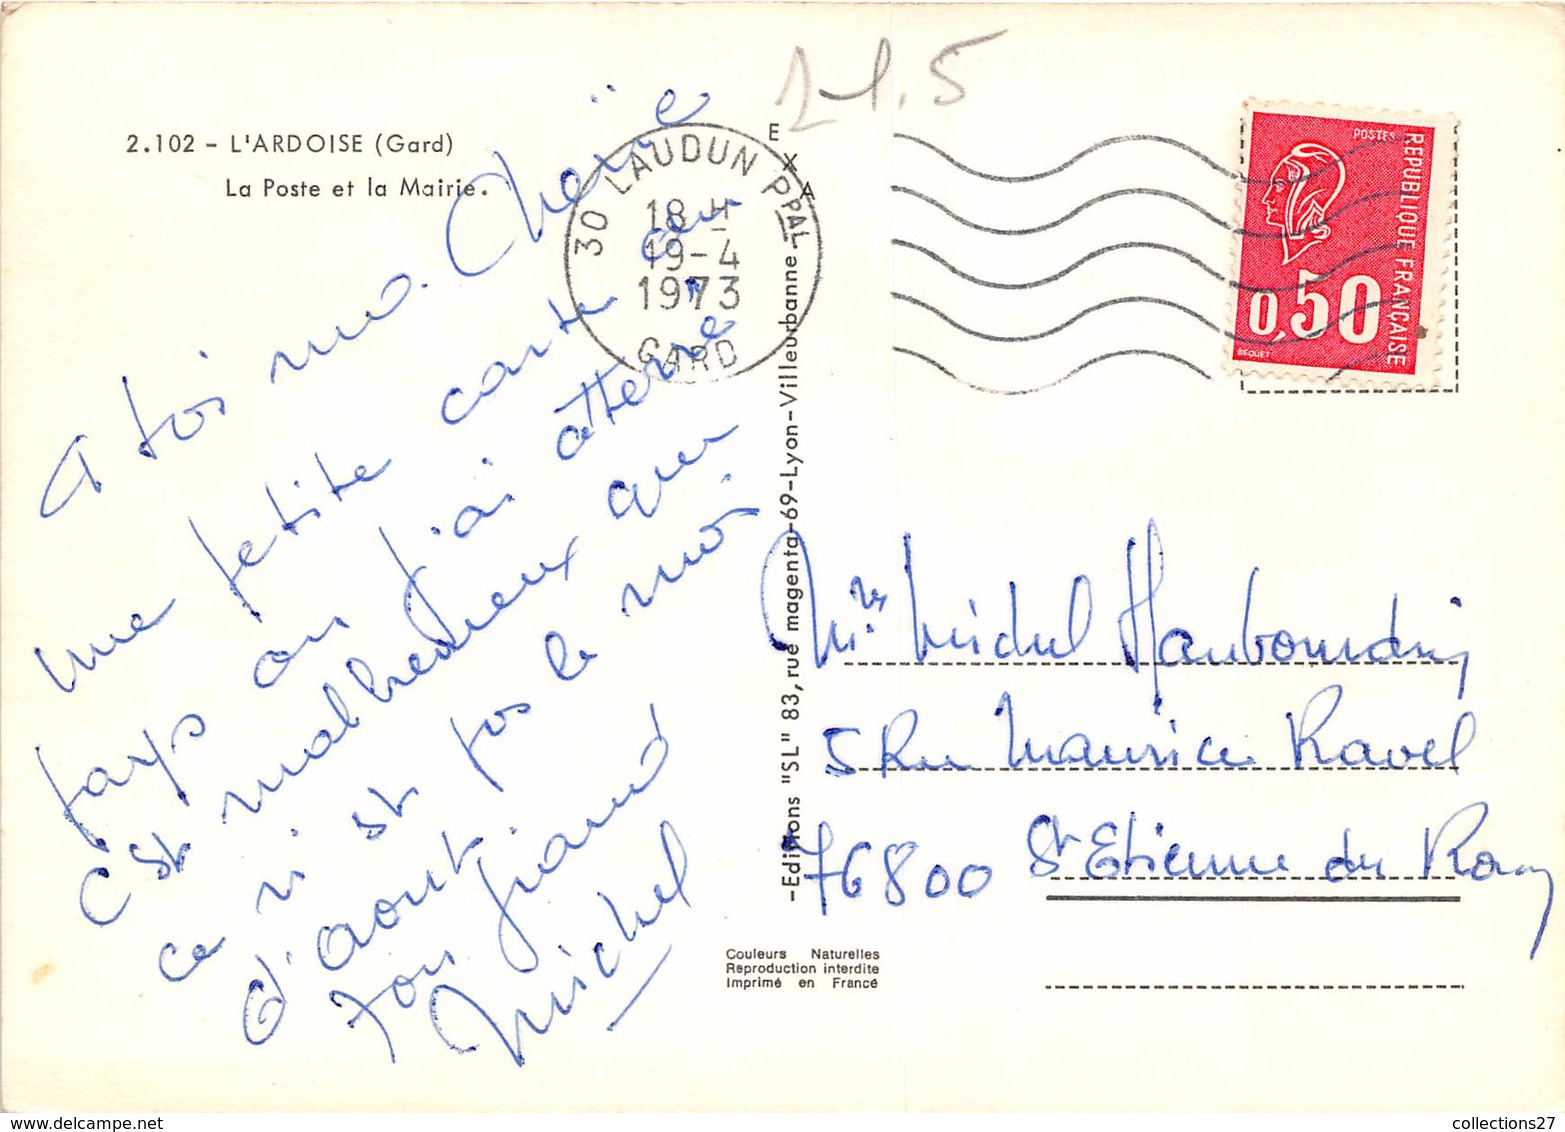 2.102 - L'ARDOISE (Gard)
La Poste et la Mairie.
21.5
A toi ma Cherïe
une petite carte du
pays où j'ai atterré
c'est malheureux que
ce n'est pas le moi
d'aout
Ton grand
Michel
30 LAUDUN PPAL
18 H
19-4
1973
GARD
EXA
-Editions "SL" 83, rue magenta-69-Lyon-Villeurbanne-
POSTES
REPUBLIQUE FRANÇAISE
0,50
BEQUET
Michel
5 Rue Maurice Ravel
76800 St Etienne du Rouvray
Couleurs Naturelles
Reproduction interdite
Imprimé en France
collections27